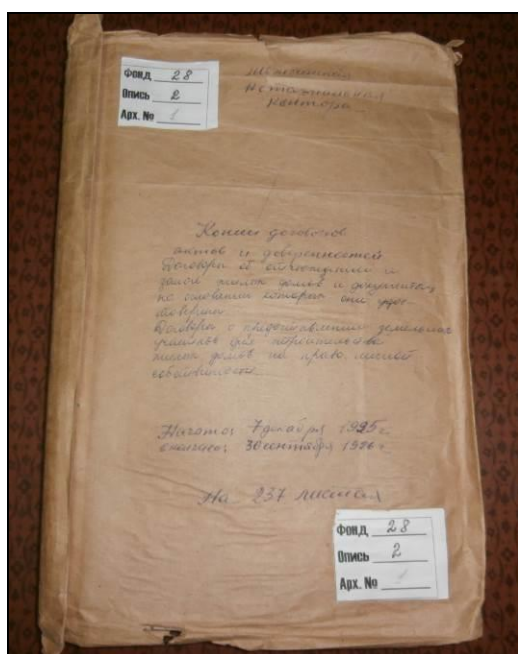 Фонд 28
Опись 2
Арх. № 1
нотариальная
контора
Копии договоров
актов и доверенностей
Договоры об отчуждении и
залоге жилых домов и документы,
на основании которых они удос-
товерены.
Договоры о предоставлении земельных
участков для строительства
жилых домов на право личной
собственности.
Начато: 7 декабря
окончено: 30 сентября
На 237 листах
Фонд 28
Опись 2
Арх. № 1